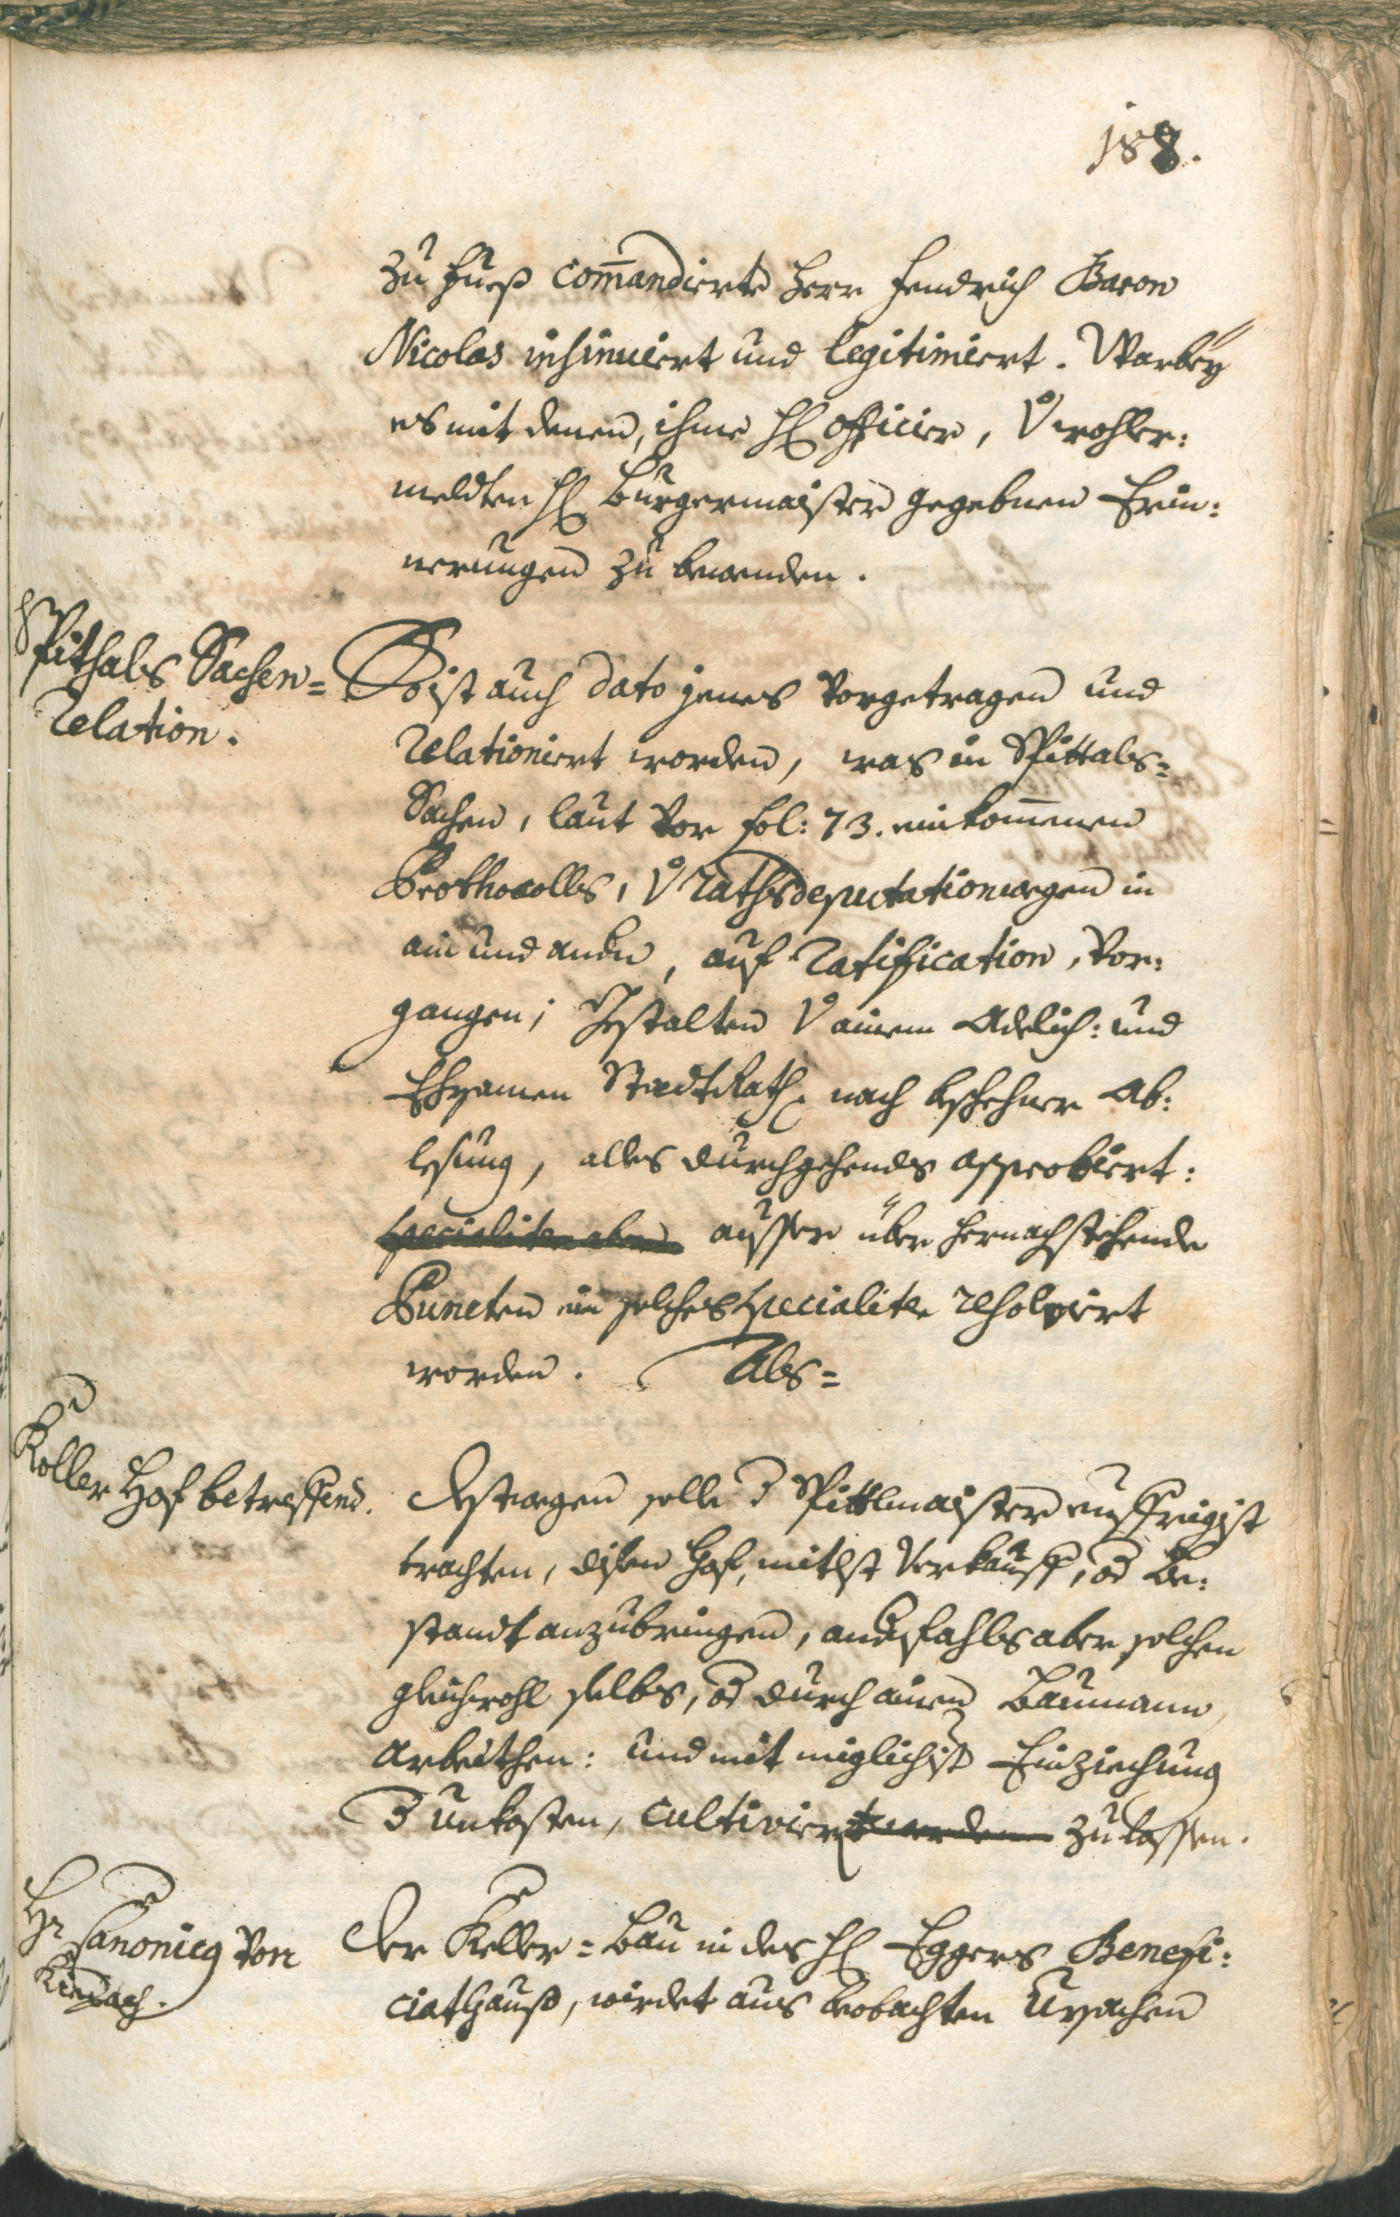 188.
zu Fueß com̄andierte Herr Fendrich Baron
Nicolas insinuiert und legitimiert. Warbey
es mit denen, ihme H: officier, v wohler:
meldten H: Burgermaister gegebnen Erin:
nerungen zu bewenden.
Spithals Sachen=
relation.
So ist auch dato jenes vorgetragen und
relationiert worden, was in Spittals=
Sachen, laut vor fol: 73. einkom̄enen
Prothocolls, v Raths deputationwegen in
ain und andn, auf ratification, vor:
gangen; Gestalten v ainem Adelich: und
Ehrsamen StadtRath, nach beschehner Ab:
lesung, alles durchgehends approbiert:
specialiter aber ausser über hernachstehende
Puncten ein solches specialiter resolviert
worden. Als=
Koller Hof betreffend.
Destwegen solle d Spittlmaister eyffrigist
trachten, disen Hof, mitlst Verkauff, od Be:
standt anzubringen, andsfahls aber solchen
gleichwohl selbs, od durch ainen Baumann
Arbeithen: und mit miglichist Einziechung
d unkosten, cultiviert werden zulassen.
Hr Canonicg von
Kirchach.
Der Keller=Bau in des H: Eggers Benefi:
ciathauß, wirdet aus beobachten Ursachen